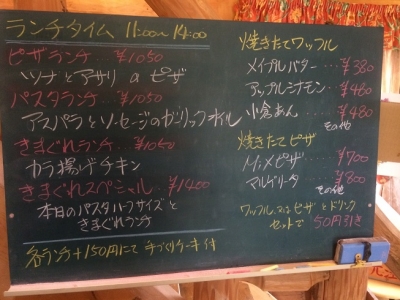 ランチタイム 11:00~14:00
ピザランチ…¥1050
ツナとアサリのピザ
パスタランチ…¥1050
アスパラとソーセージのガーリックオイル
きまぐれランチ…¥1050
カラ揚げチキン
きまぐれスペシャル…¥1400
本日のパスタハーフサイズと
きまぐれランチ
各ランチ+150円にて手づくりケーキ付
焼きたてワッフル
メイプルバター…¥380
アップルシナモン…¥480
小倉あん…¥480
その他
焼きたてピザ
Mixピザ…¥700
マルゲリータ…¥800
その他
ワッフル又はピザとドリンク
セットで50円引き